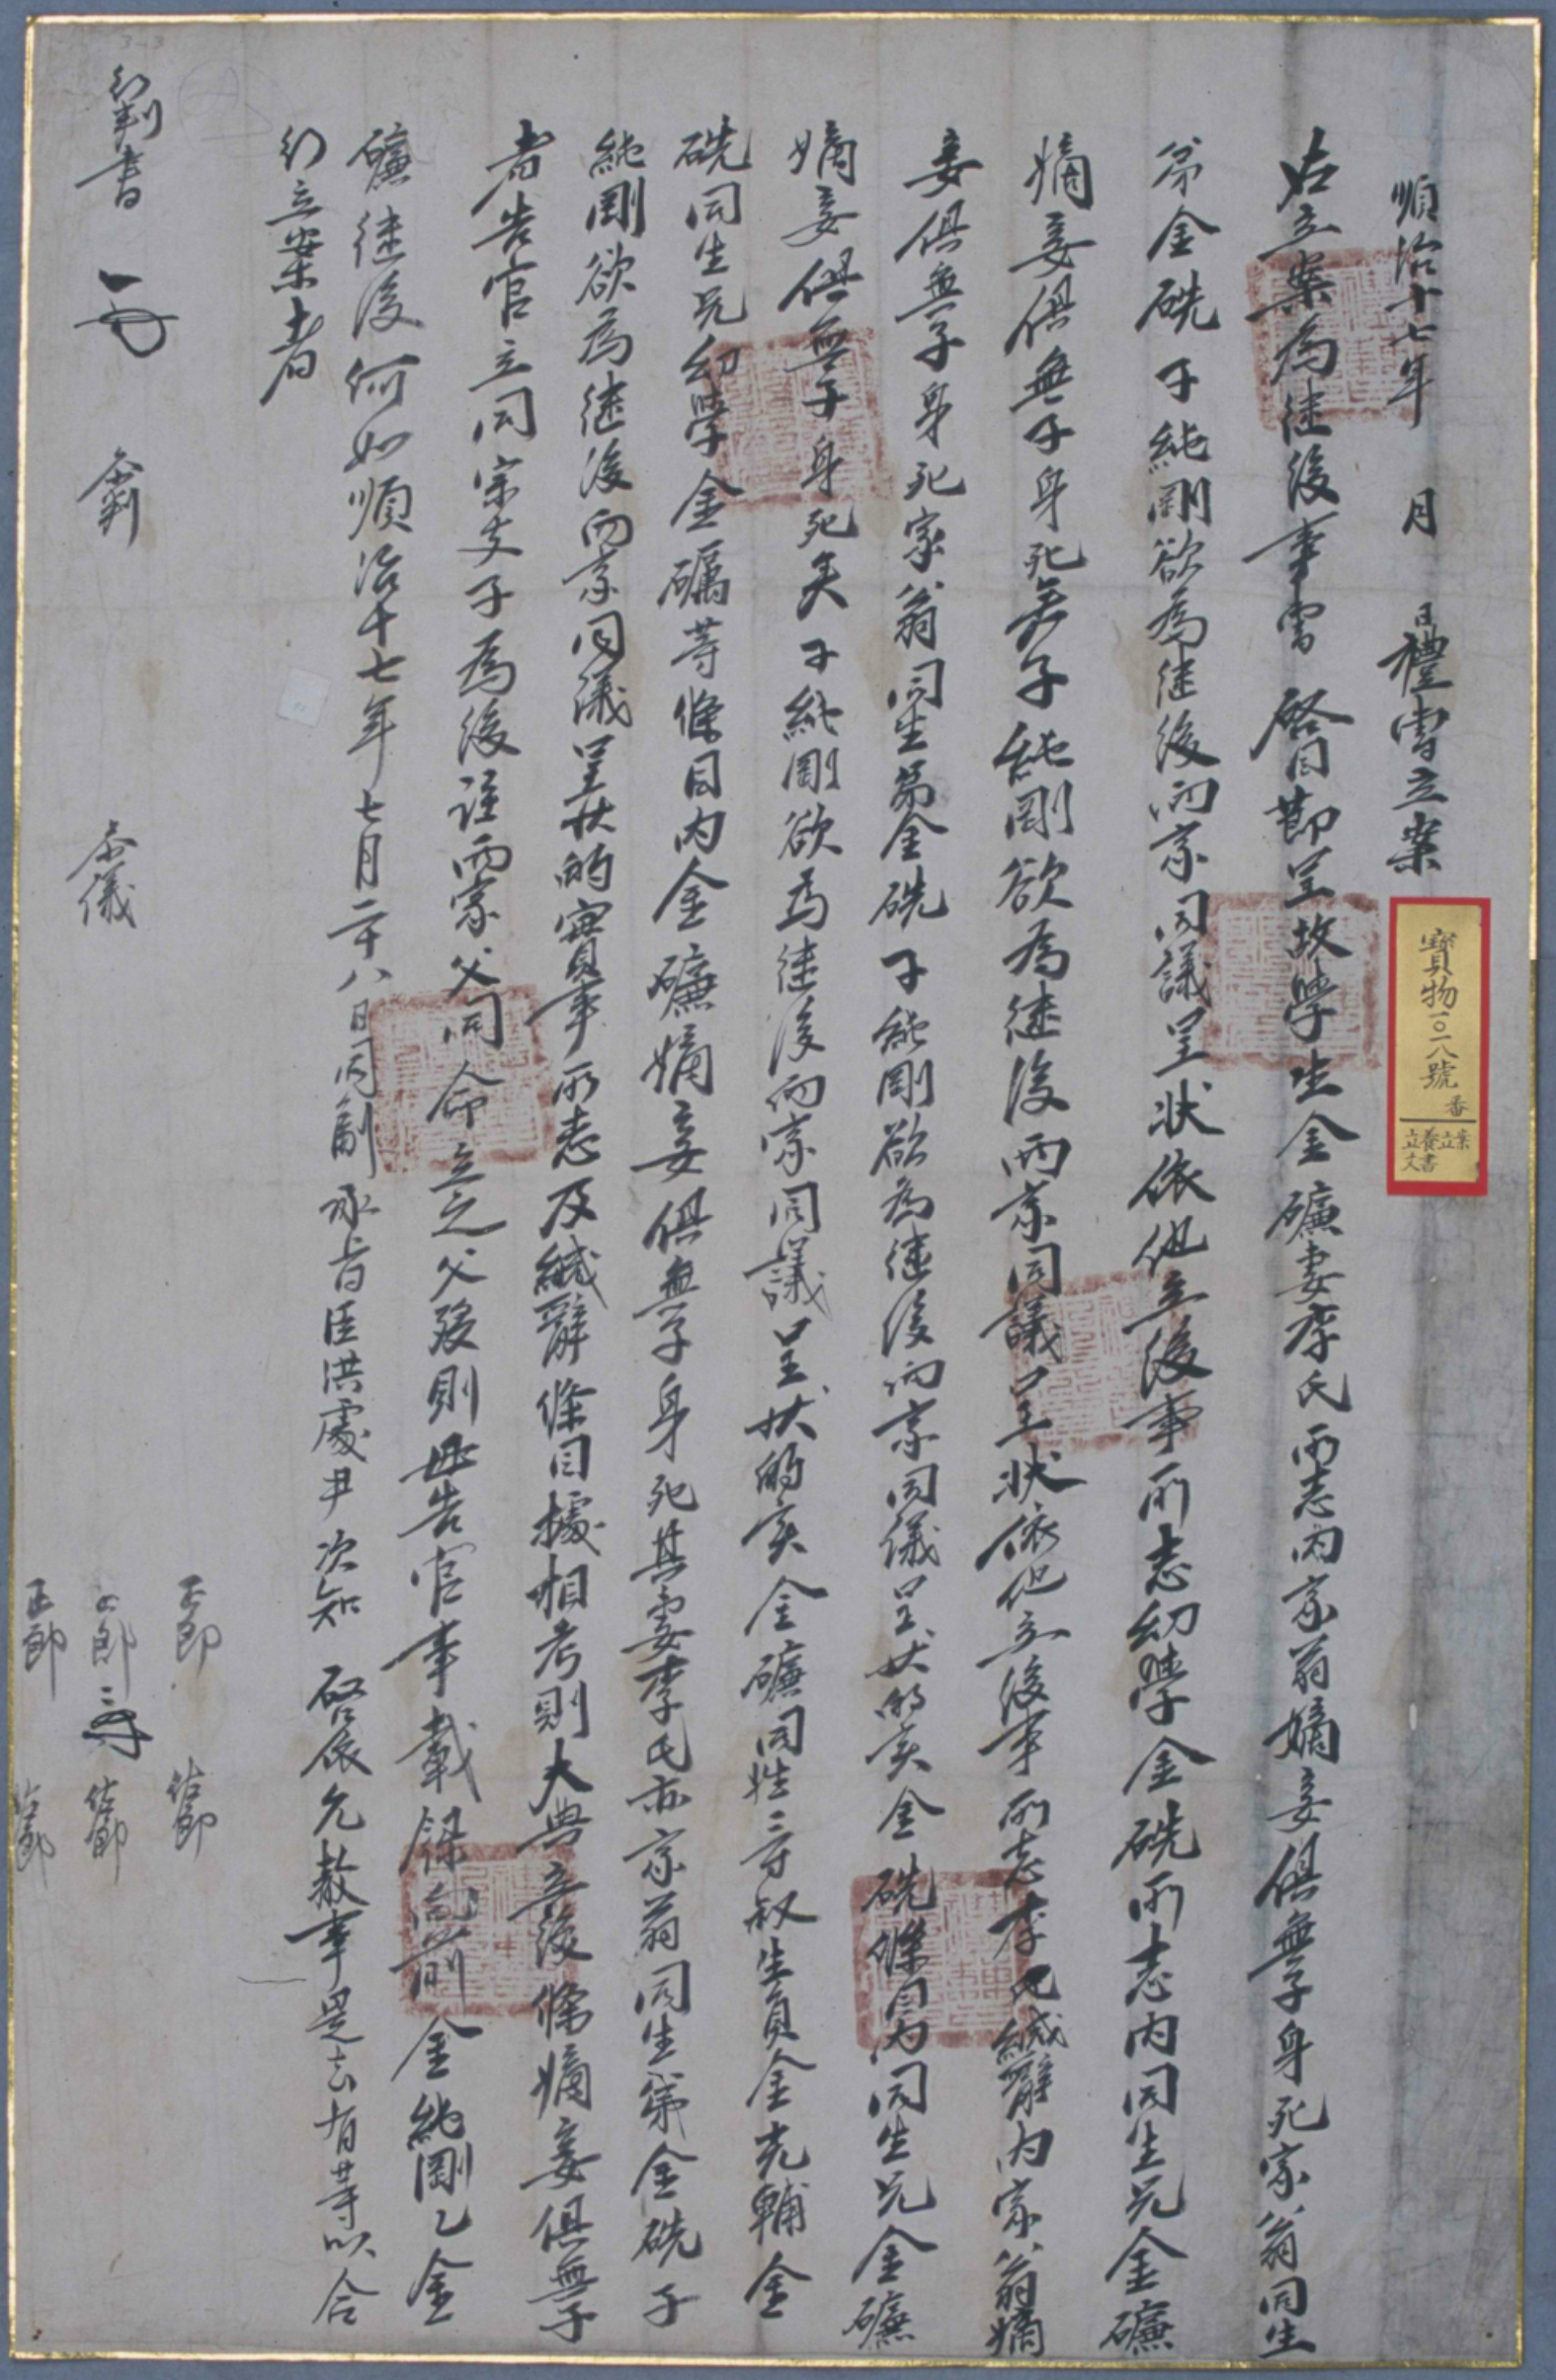 順治十七年 月 日禮曹立案
右立案爲继後事曺 啓目節呈故學生金礦妻李氏所志內家翁嫡妾俱無子身死家翁同生
弟金硄子純剛欲爲继後兩家同議呈狀依他立後事所志幼學金硄所志內同生兄金礦
嫡妾俱無子身死矣子純剛欲爲继後兩家同議呈狀依他立後事所志李氏緘辭內家翁嫡
妾俱無子身死家翁同生弟金硄子純剛欲爲继後兩家同議呈狀的實金硄條目內同生兄金礦
嫡妾俱無子身死矣子純剛欲爲继後兩家同議呈狀的实金礦同姓三寸叔生員金克輔金
硄同生兄幼學金礪等條目內金礦嫡妾俱無子身死其妻李氏亦家翁同生弟金硄子
純剛欲爲继後兩家同議呈狀的實事所志及緘辭條目據相考則大典立後條嫡妾俱無子
者告官立同宗支子爲後註兩家父同命立之父歿則母告官事載錄爲有 金純剛乙金
礦继後何如順治十七年七月二十八日同副承旨臣洪處尹次知 啓依允敎事是去有等以合
行立案者
行判書 參判 参議
正郎 佐郎
正郎 佐郎
正郎 佐郎
寶物一〇一八號
番
立養立案
文書